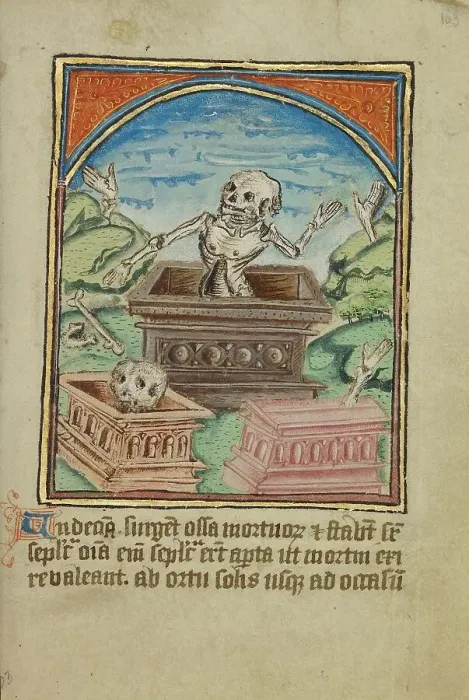 103
Undecīa. surgēt ossa mortuoꝝ ⁊ stabūt sr̄
seplcrᵃ oīa em̄ seplcrᵃ erūt apta ut mortui exi
re valeant. ab ortu solis usqꝫ ad occasū